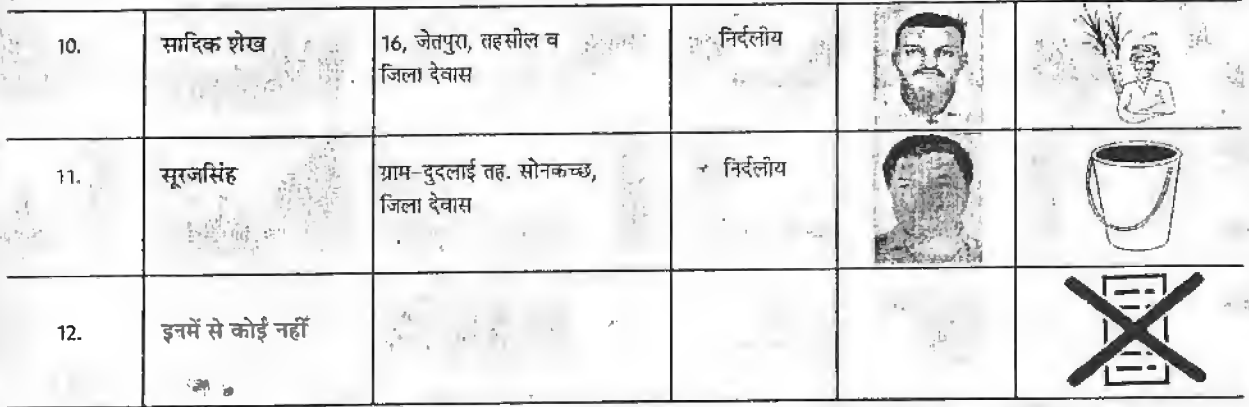 10.
सादिक शेख
16, जेतपुरा, तहसील व
जिला देवास
निर्दलीय
11.
सूरजसिंह
ग्राम-दुदलाई तह. सोनकच्छ,
जिला देवास
निर्दलीय
12.
इनमें से कोई नहीं